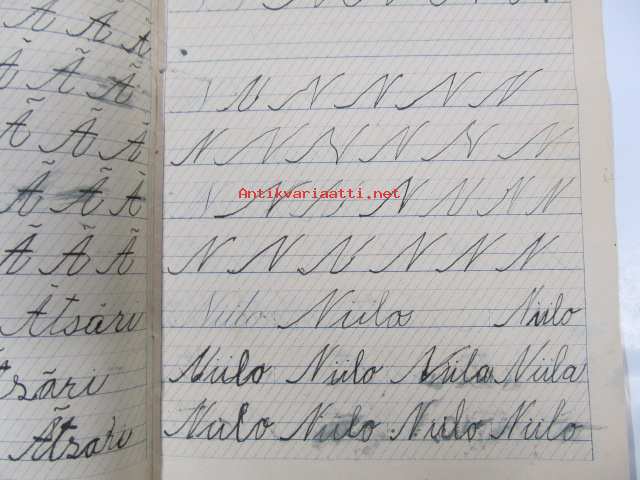 Ä Ä Ä
Ä Ä Ä
Ä Ä Ä
Ä Ä Ä
Ä Ä Ä
Ätsäri
Ätsäri
Ätsäri
N N N N N
N N N N N N
N N N N N N
Antikvariaatti.net
N N N N N N
Niilo Niilo Niilo
Niilo Niilo Niila Niila
Niilo Niilo Niilo Niilo